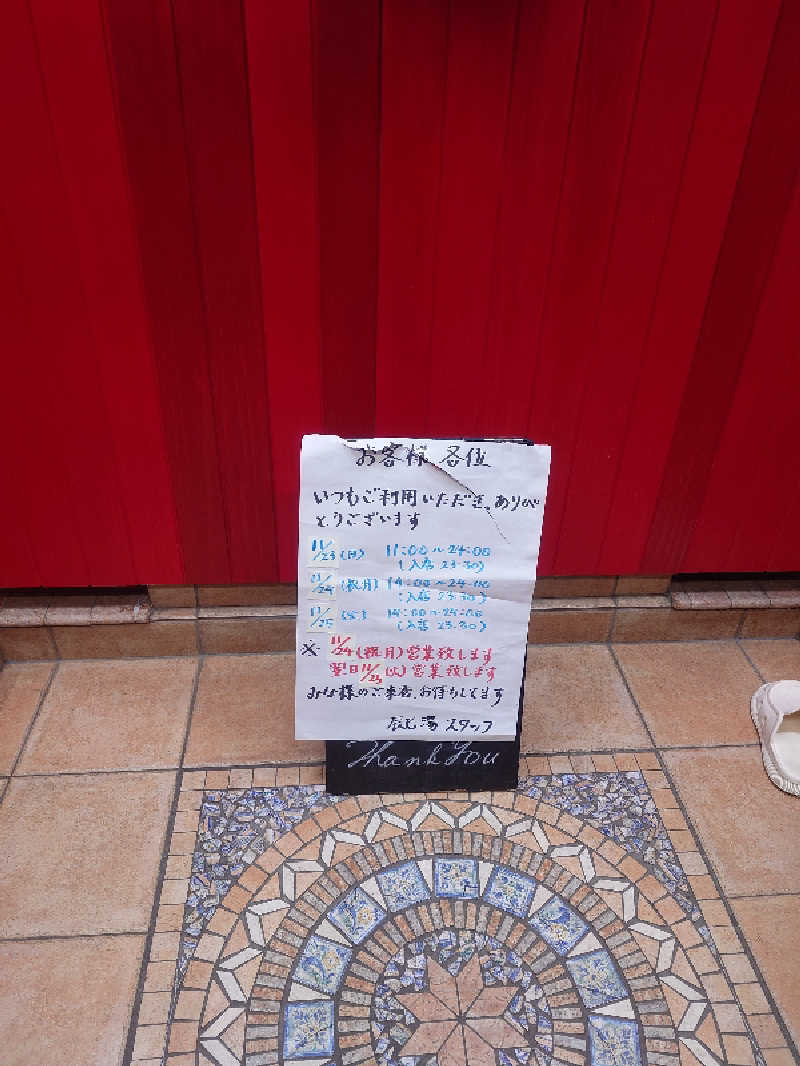 お客様 各位
いつもご利用いただき、ありが
とうございます
11/23(日) 11:00〜24:00
(入店 23.30)
11/24(祝月) 14:00〜24:00
(入店 23.30)
11/25 14:00〜24:00
(入店 23.30)
※ 11/24(祝.月)営業致します
翌日11/25(火)営業致します
皆様のご来店、お待ちしてます
湯 スタッフ
Thank You